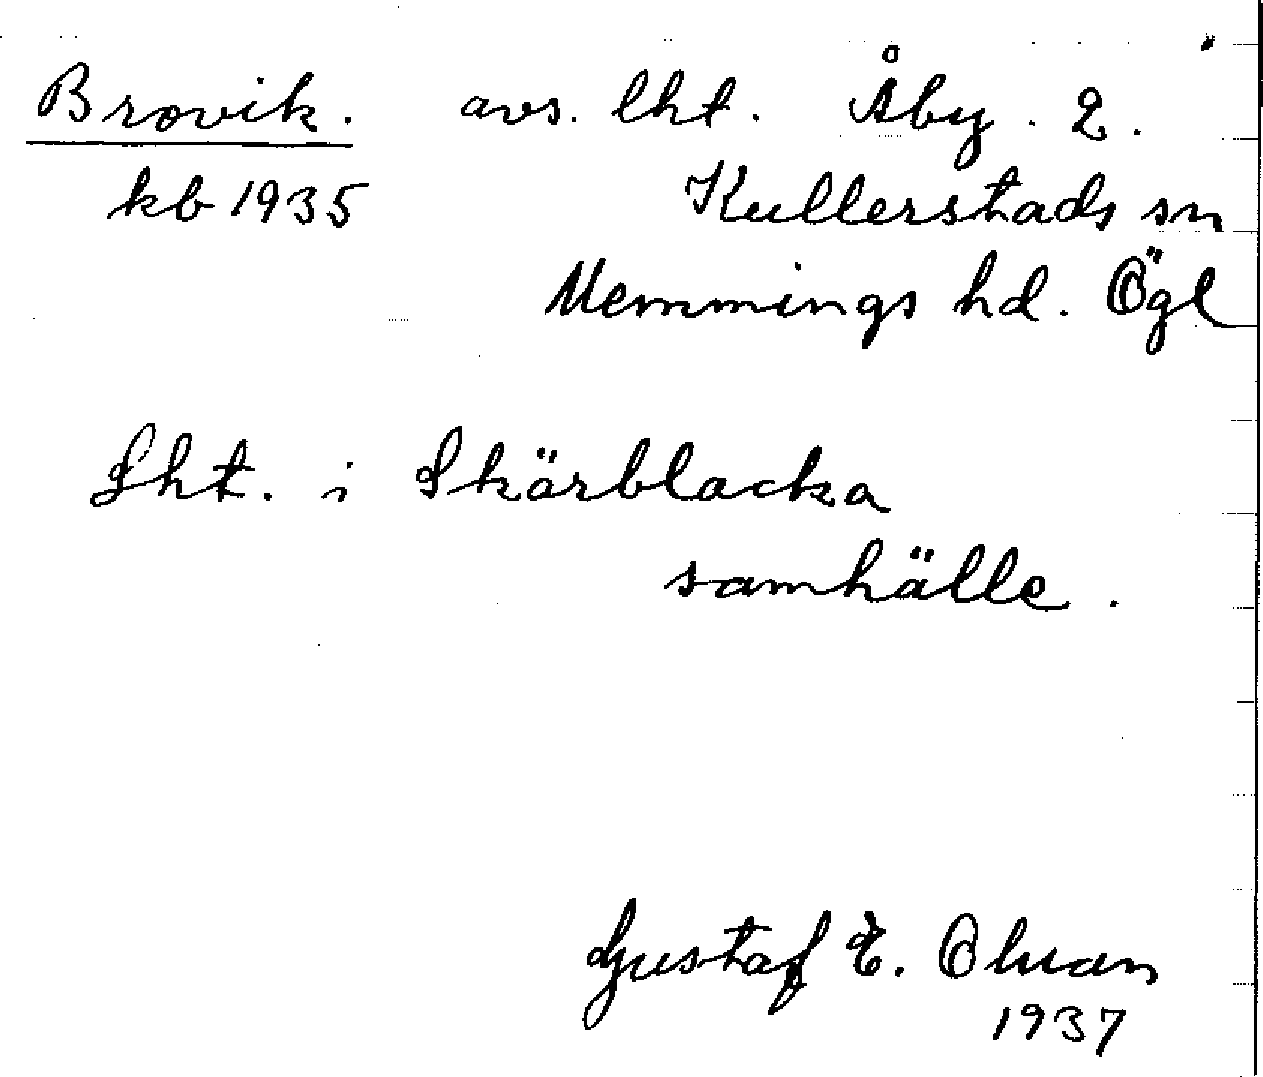 Brovik. avs. lht. Åby. 2.
kb 1935 Kullerstads sn
Memmings hd. Ögl
Lht. i Skärblacka
samhälle.
Gustaf E.
1937